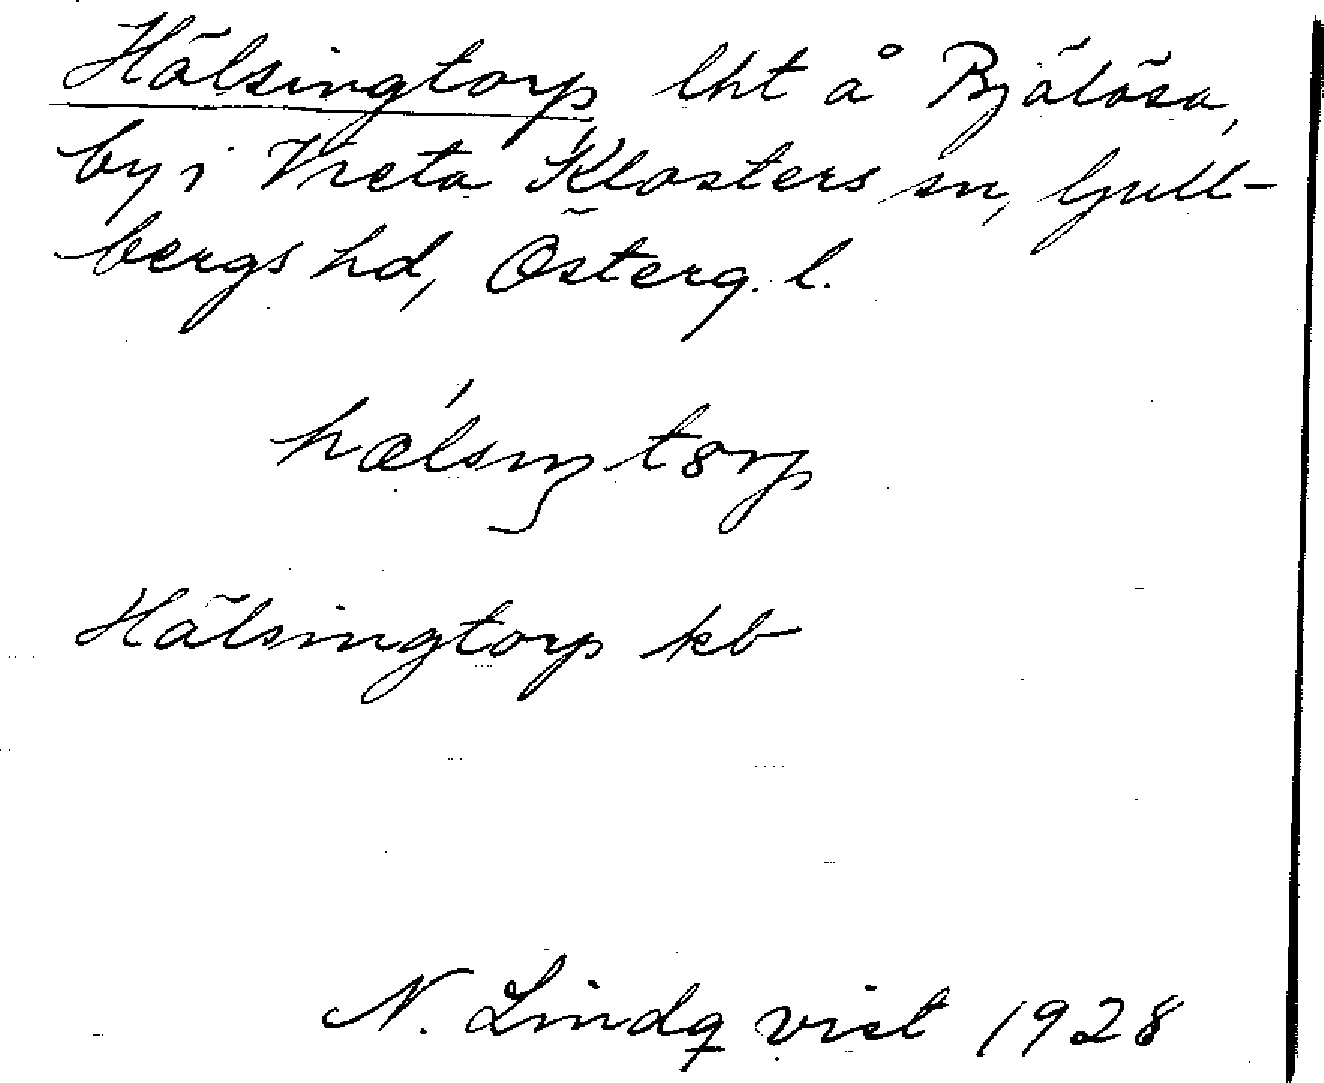 Hälsingtorp lht å Bjälösa,
by i Vreta Klosters sn, Gull-
bergs hd, Österg. l.
hǽlsıŋtȣrp
Hälsingtorp kb
N. Lindqvist 1928